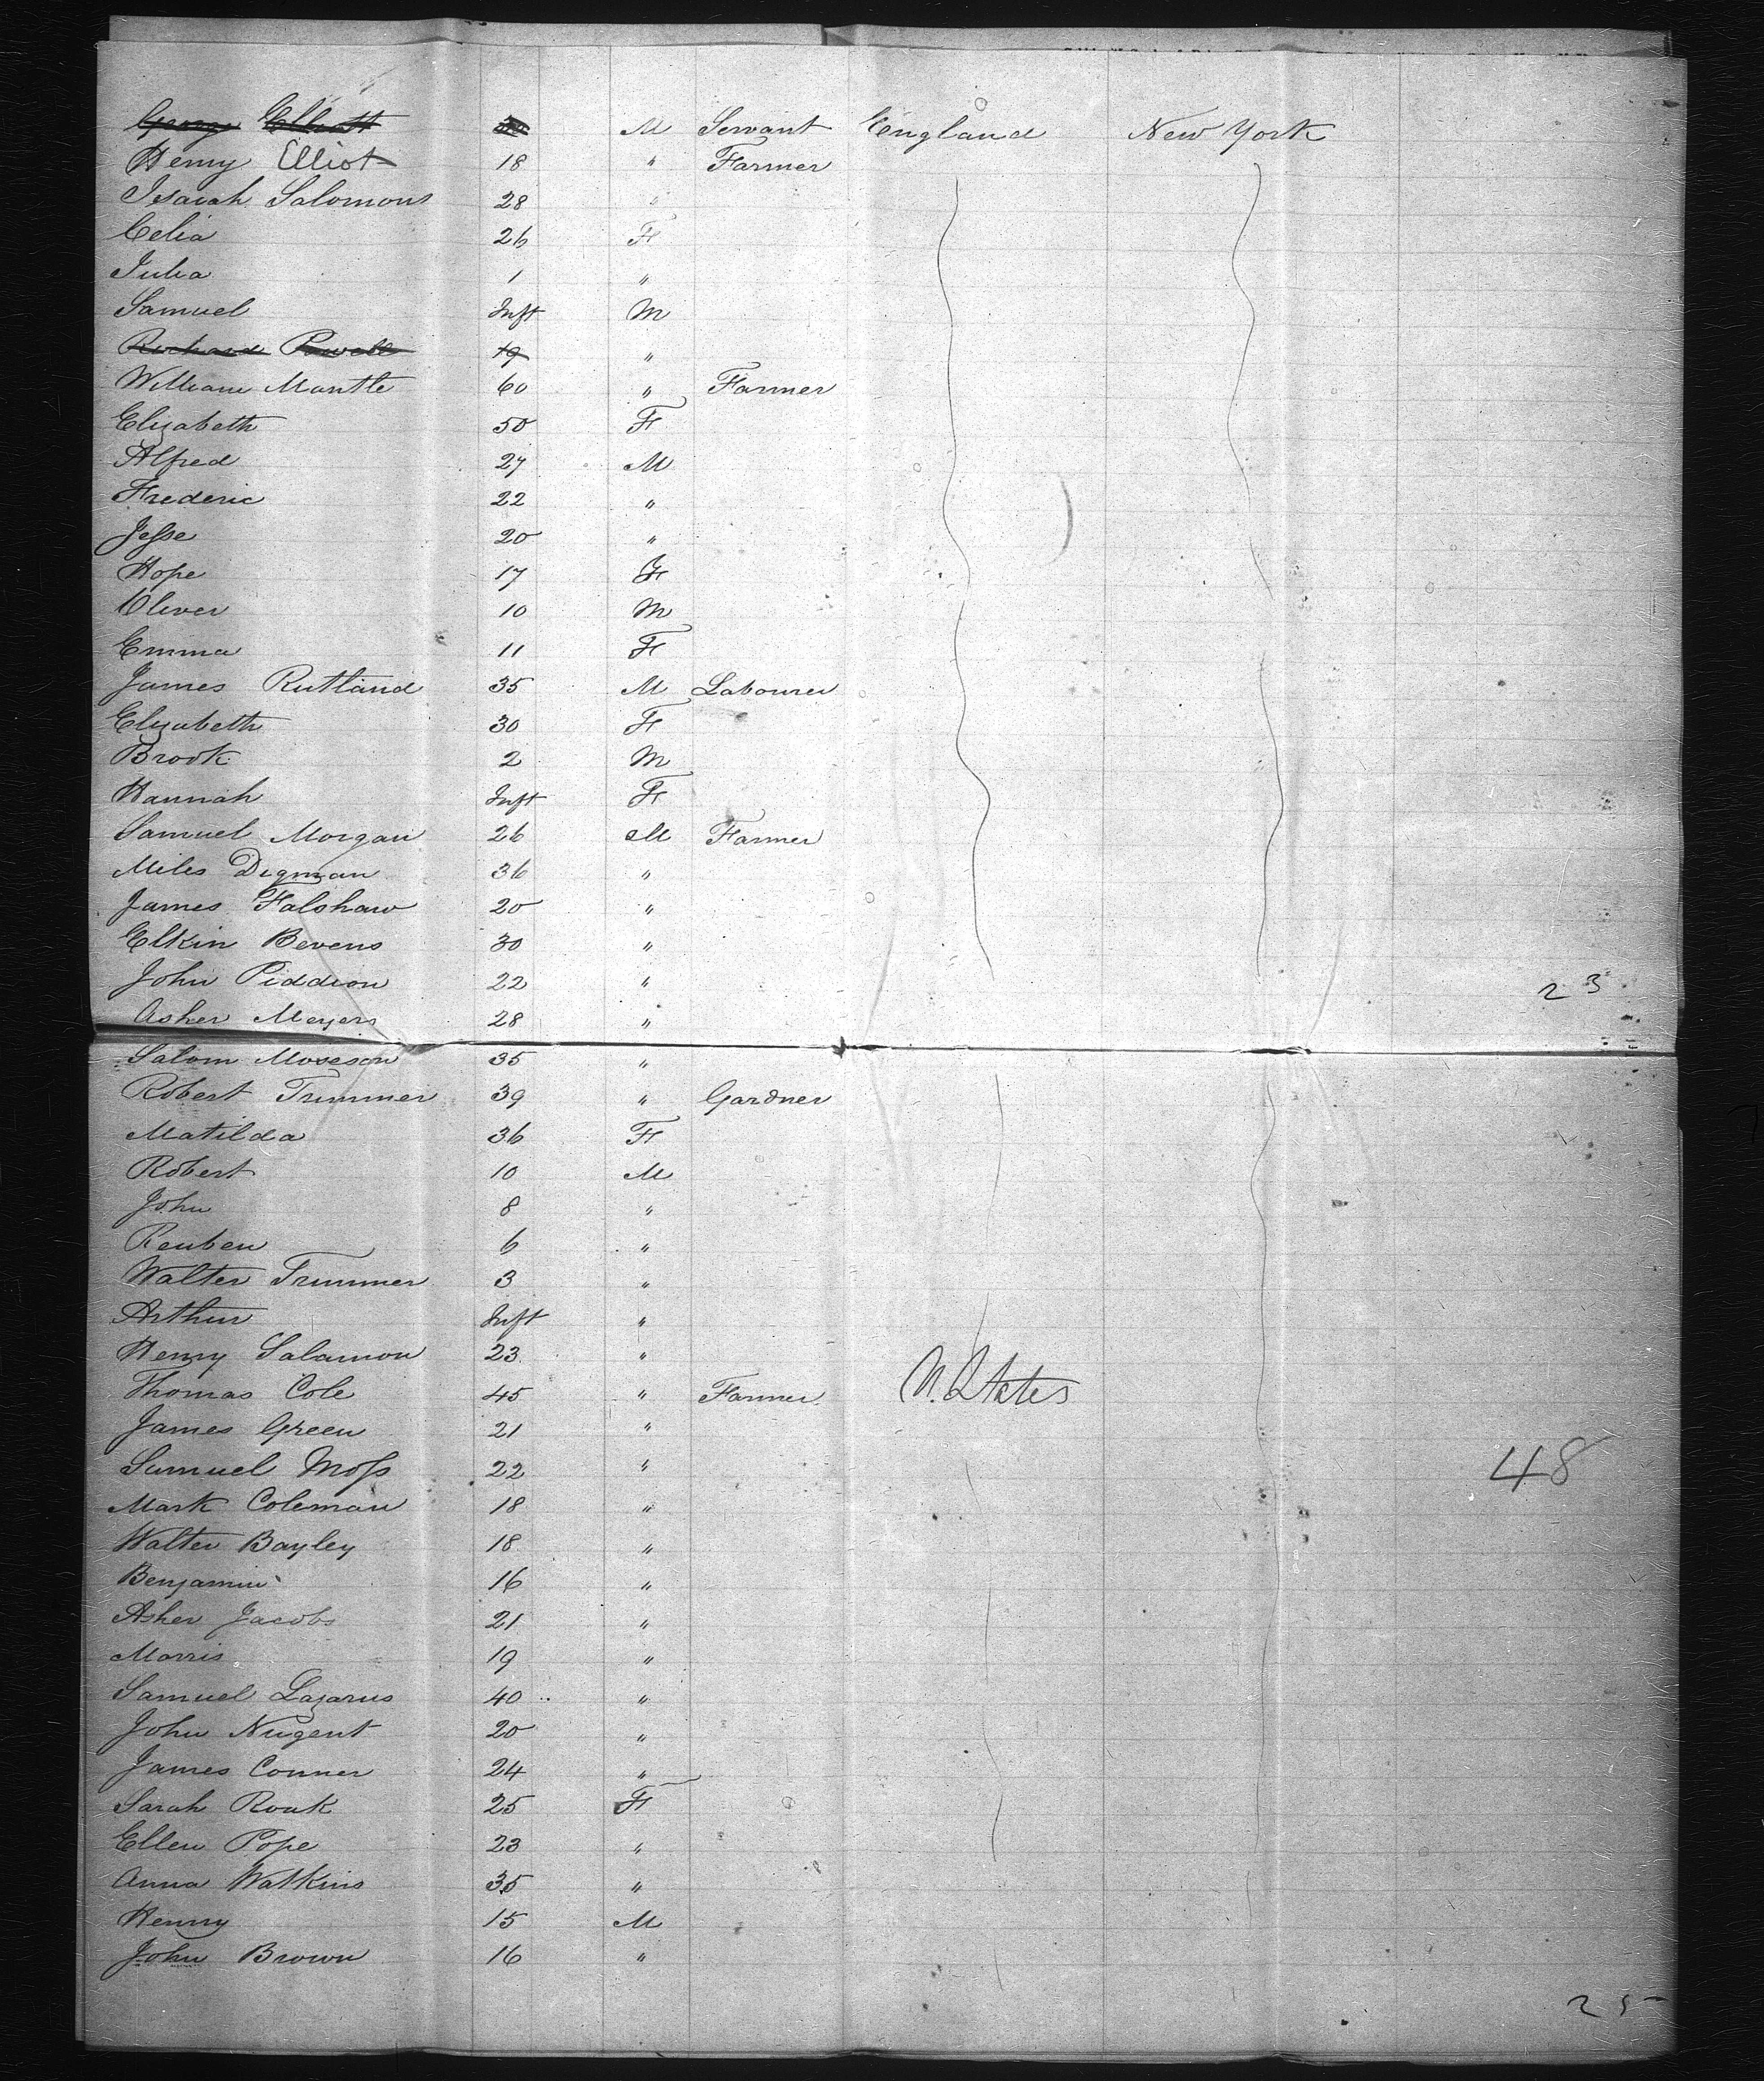 George Elliott M Servant England New York
Henry Elliot 18 " Farmer
Isaiah Salomons 28 "
Celia 26 F
Julia 1 "
Samuel Inft M
Richard Powell 19 "
William Mantle 60 " Farmer
Elizabeth 50 F
Alfred 27 M
Frederic 22 "
Jesse 20 "
Hope 17 F
Oliver 10 M
Emma 11 F
James Rutland 35 M Labourer
Elizabeth 30 F
Brook 2 M
Hannah Inft F
Samuel Morgan 26 M Farmer
Miles Digman 36 "
James Falshaw 20 "
Elkin Bevens 30 "
John Piddion 22 " 23
Asher Meyers 28 "
Salom Moseson 35 "
Robert Trimmer 39 " Gardner
Matilda 36 F
Robert 10 M
John 8 "
Reuben 6 "
Walter Trimmer 3 "
Arthur Inft "
Henry Salamon 23 "
Thomas Cole 45 " Farmer U. States
James Green 21 "
Samuel Moss 22 " 48
Mark Coleman 18 "
Walter Bayley 18 "
Benjamin 16 "
Asher Jacobs 21 "
Morris 19 "
Samuel Lazarus 40 "
John Nugent 20 "
James Conner 24 "
Sarah Rouk 25 F
Ellen Pope 23 "
Anna Watkins 35 "
Henry 15 M
John Brown 16 "
25